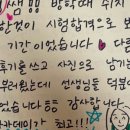 쌤!! 방학때 쉬지
한것이 시험합격으로 보
기간이었습니다 다음
휴가를 쓰고 사진으로 남기는
부러웠는데 선생님들 덕분에
었습니다 감사합니다
카데미가 최고!!!